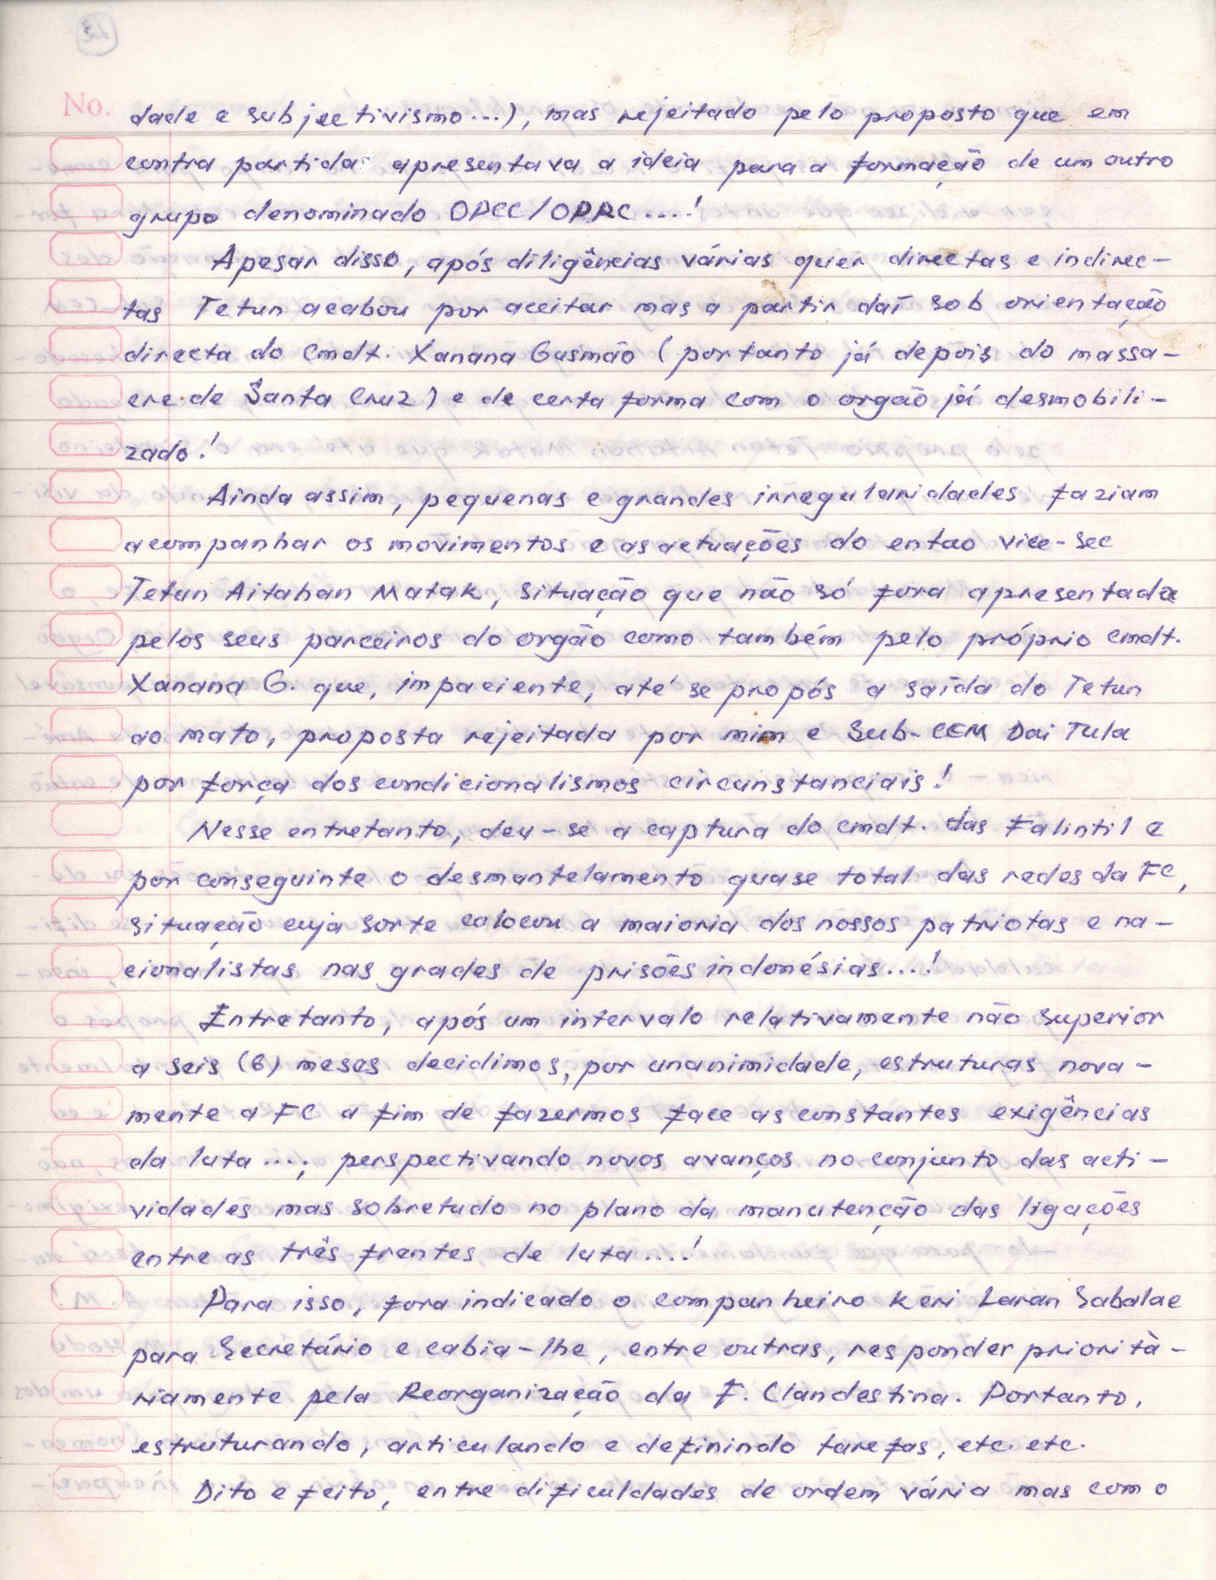 No.
dade e subjectivismo...), mas rejeitado pelo proposto que em
contra partida apresentava a ideia para a formação de um outro
grupo denominado OPCC/OPRC....!
Apesar disso, após diligências várias quer directas e indirec-
tas Tetun acabou por aceitar mas a partir daí sob orientação
directa do Cmdt. Xanana Gusmão (portanto já depois do massa-
cre de Santa Cruz) e de certa forma com o orgão já desmobili-
zado!
Ainda assim, pequenas e grandes irregularidades faziam
acompanhar os movimentos e as actuações do entao vice-sec
Tetun Aitahan Matak, situação que não só fora apresentada
pelos seus parceiros do orgão como também pelo próprio cmdt.
Xanana G. que, impaciente, até se propós a saída do Tetun
ao mato, proposta rejeitada por mim e Sub-CEM Dai Tula
por força dos condicionalismos circunstanciais!
Nesse entretanto, deu-se a captura do cmdt. das Falintil e
por conseguinte o desmantelamento quase total das redes da FC,
situação cuja sorte colocou a maioria dos nossos patriotas e na-
cionalistas nas grades de prisões indonésias....!
Entretanto, após um intervalo relativamente não superior
a seis (6) meses decidimos, por unanimidade, estruturas nova-
mente a FC a fim de fazermos face as constantes exigências
da luta ...., perspectivando novos avanços no conjunto das acti-
vidades mas sobretudo no plano da manutenção das ligações
entre as três frentes de luta....!
Para isso, fora indicado o companheiro Keri Laran Sabalae
para Secretário e cabia-lhe, entre outras, responder priorità-
riamente pela Reorganização da F. Clandestina. Portanto,
estruturando, articulando e definindo tarefas, etc. etc.
Dito e feito, entre dificuldades de ordem vária mas com o